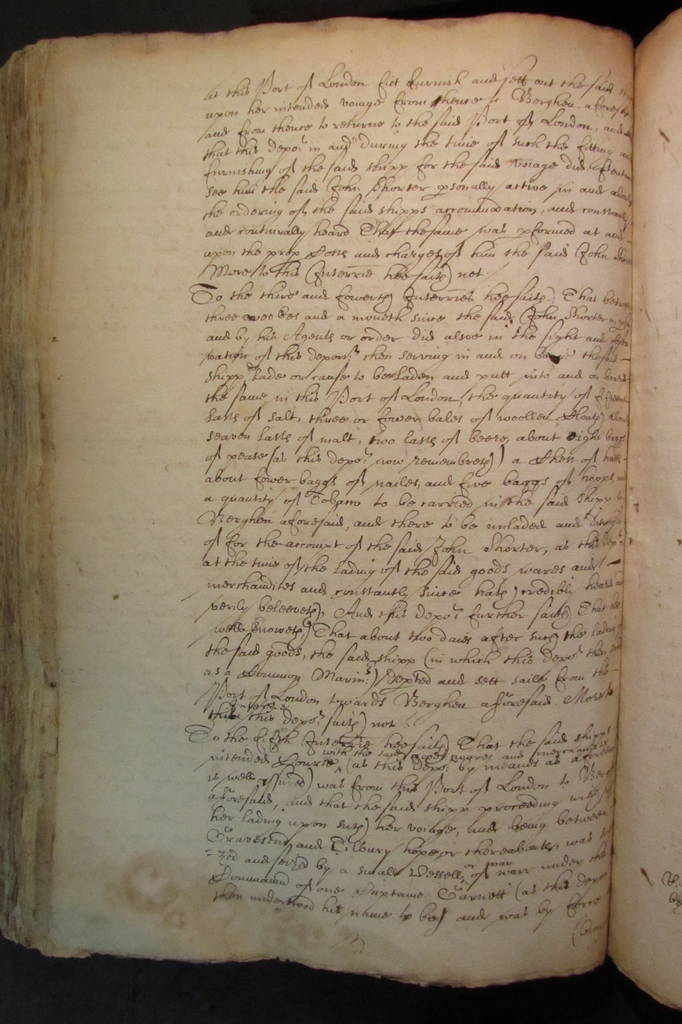 at this Port of London fitt furnish and sett out the said
upon her intended voiage from thence to Berghen aforesaid
and from thence to returne to the said Port of London, and
that this depot in and during the time of such the fitting and
furnishing of the said shipp for the said voiage did
see him the said John Shorter psonally active in and about
the ordering of the said shipps accommodation, and constantly
and continually heard That the same was pformed at and
upon the prop Costs and charges of him the said John
More to this Interrie hee saith not
To the third and fowerth Interries hee saith That betweene
three weekes and a moneth since the said John Shorter
and by his Agents or order did alsoe in the sight and
vation of this depont then serving in and on board the said
shipp lade or cause to be laden and putt into and on board
the same in this Port of London the quantity of
lasts of salt, three or fower bales of woollen Cloath
seaven lasts of malt, two lasts of beere, about eight baggs
of pease (as this depot now remembreth) a
about fower baggs of nailes, and five baggs of hopps, and
a quantity of Tobacco to be carried in the said shipp to
Berghen aforesaid, and there to be unladed and
of for the account of the said John Shorter, as this depot
at the time of the lading of the said goods wares and
merchandizes and constantly since hath credibly heard
verily beleeveth, And this depot further saith That
well knoweth That about two daies after such the lading
the said goods, the said shipp (in which this depot then
as a Common Marinr) depted and sett saile from the
Port of London towards Berghen aforesaid. More to
this this depot saith not
To the fifth Interrie hee saith That the said shipps
intended Course with the said goods wares and merchandizes
(as this depot by meanes as aforesaid
is well assured) was from this Port of London to Berghen
aforesaid, and that the said shipp proceeding with
her lading upon such her voiage, and being betweene
Gravesend and Tilbury hope or thereabouts, was
zed and seized by a small Vessell of warr under the
Command of one Captaine (as this depot
then understood his name to be) and was by force